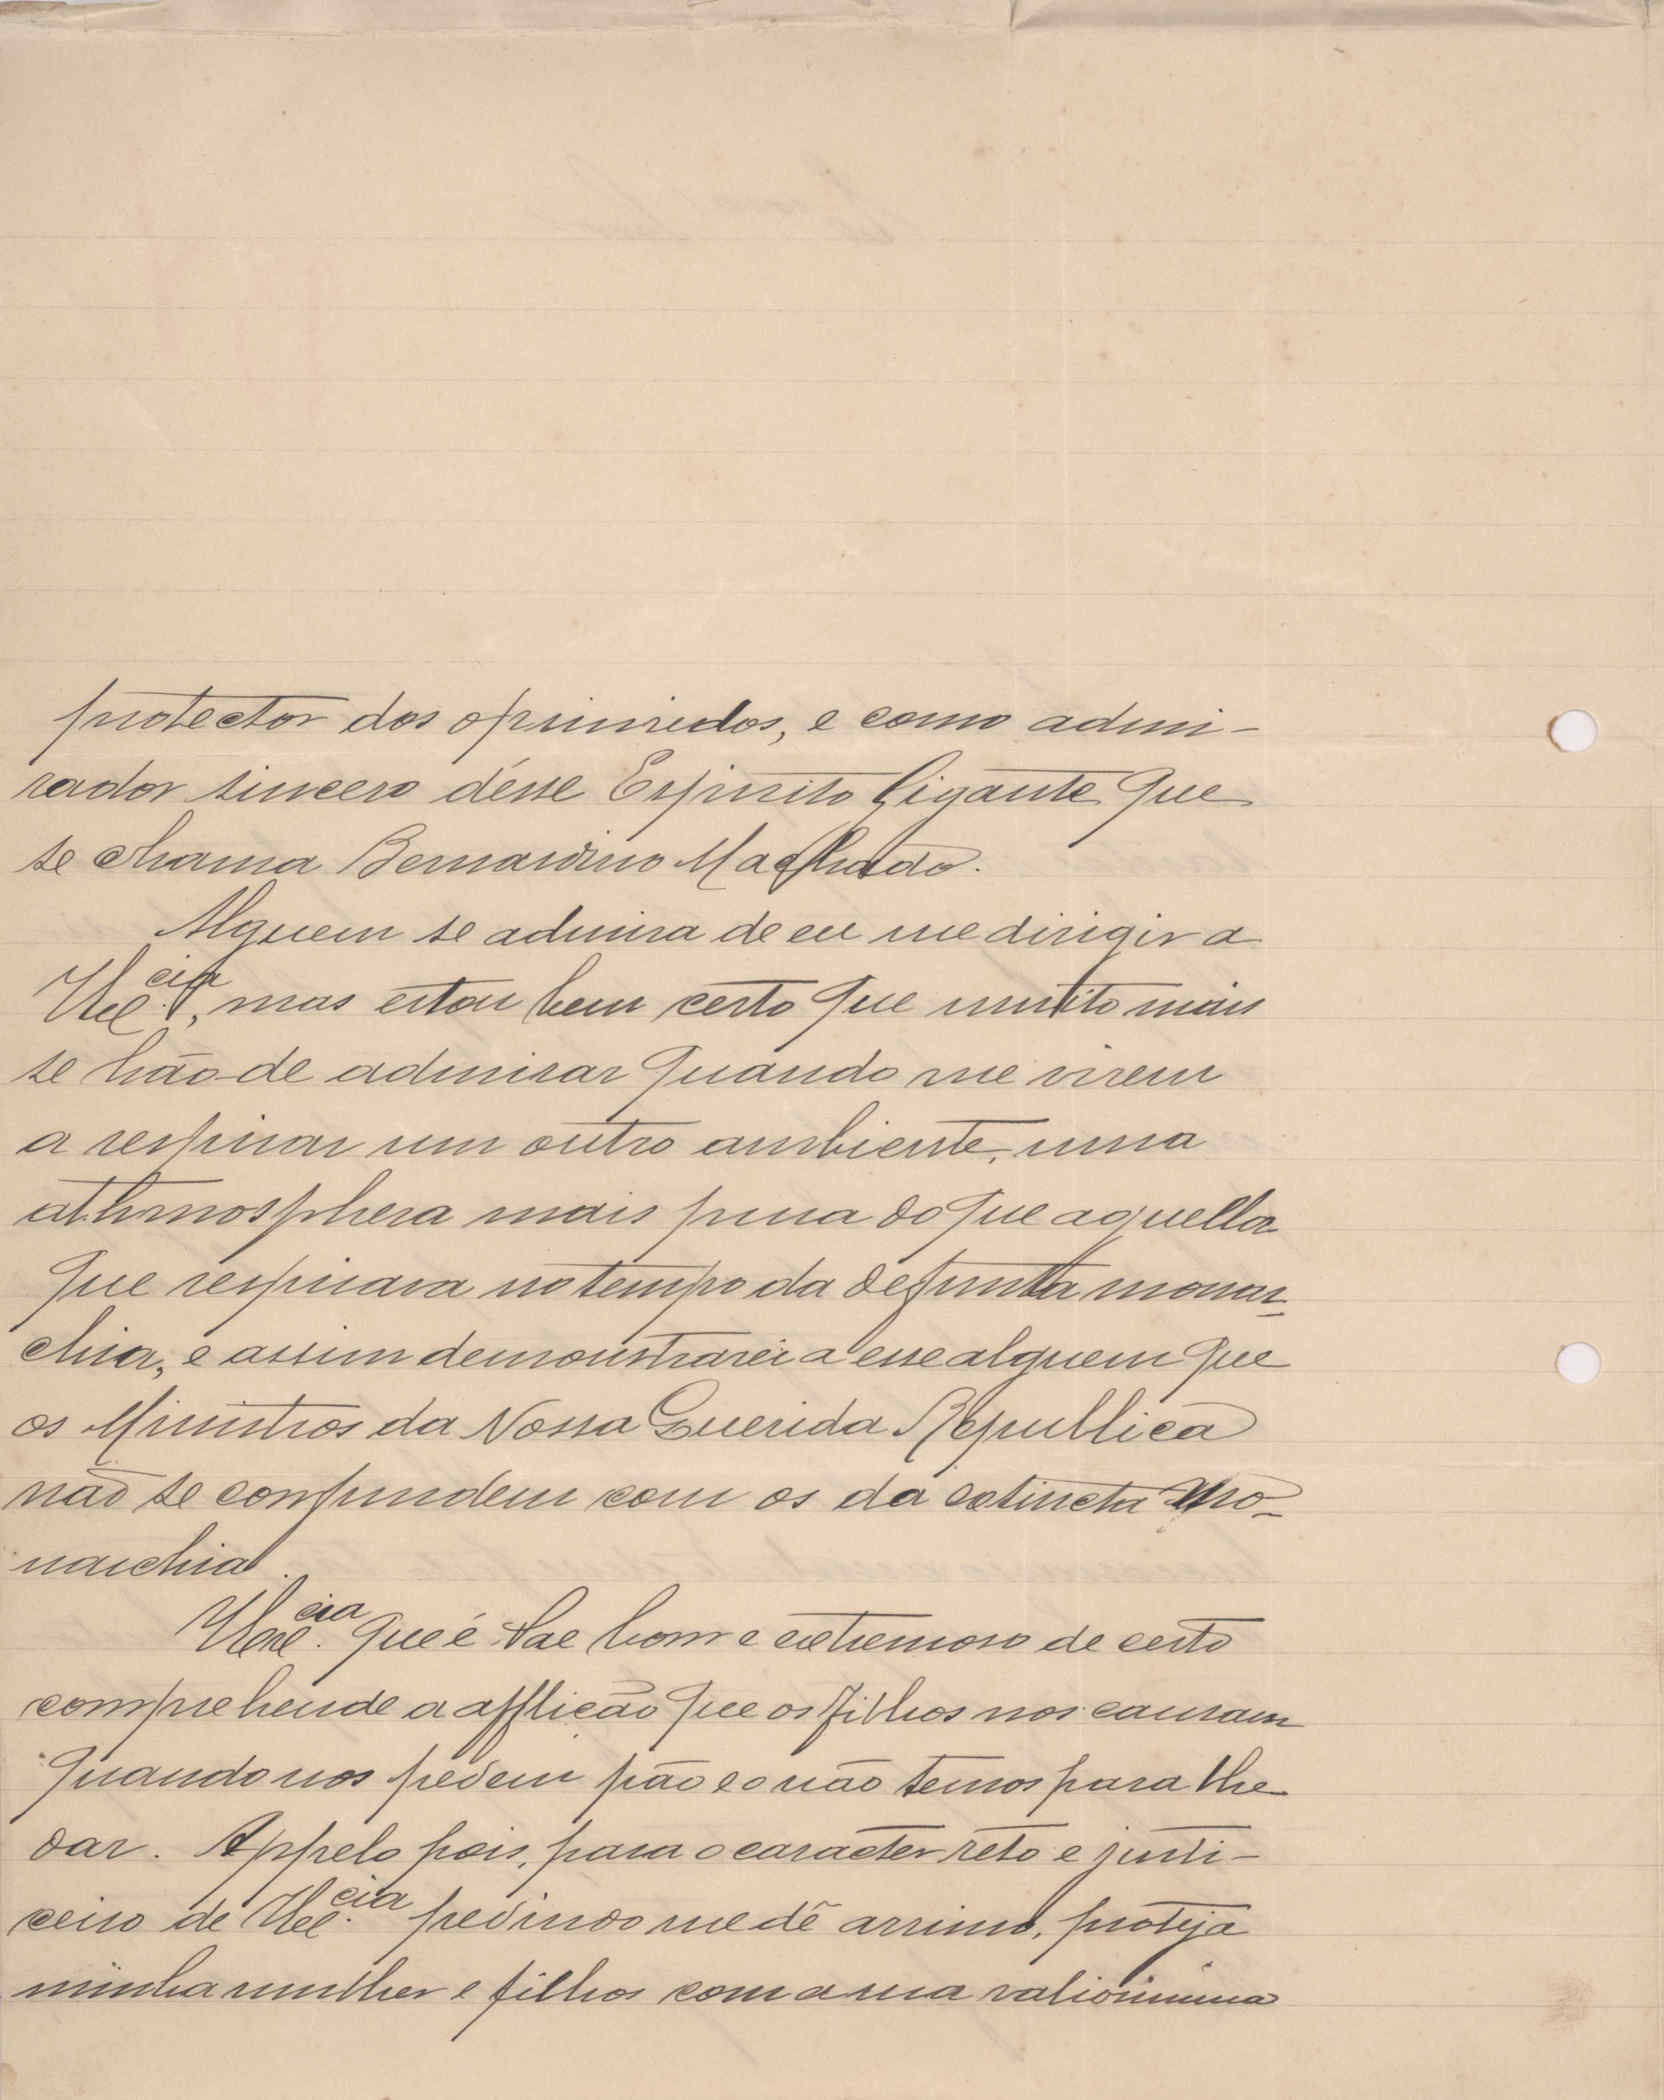 protector dos oprimidos, e como admi-
rador sincero désse Espirito Gigante que
se chama Bernardino Machado.
Alguem se admira de eu me dirigir a
V Ex.cia, mas estou bem certo que muito mais
se hão-de admirar quando me virem
a respirar um outro ambiente, uma
athmosphera mais pura do que aquella
que respirava no tempo da defunta monar-
chia, e assim demonstrarei a esse alguem que
os Ministros da Nossa Querida Republica
não se confundem com os da extincta Mo-
narchia.
V Ex.cia que é Pae bom e extremoso de certo
comprehende a afflicão que os filhos nos causam
quando nos pedem pão e o não temos para lhe
dar. Appelo pois, para o caracter reto e justi-
ceiro de V Ex.cia pedindo me dê arrimo, proteja
minha mulher e filhos com a sua valiosissima